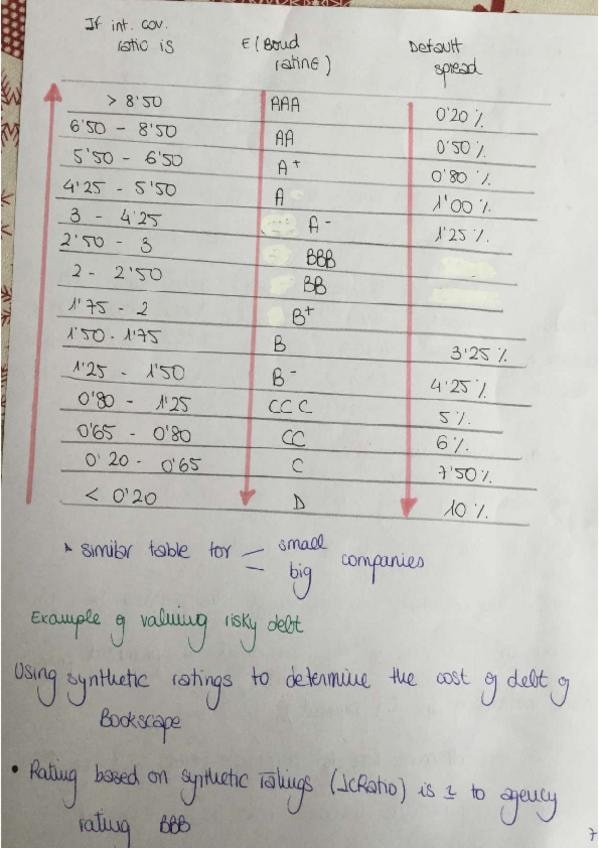 If int. cov. ratio is E(Bond rating) Default spread
> 8'50 AAA 0'20 %
6'50 - 8'50 AA 0'50 %
5'50 - 6'50 A+ 0'80 %
4'25 - 5'50 A 1'00 %
3 - 4'25 A- 1'25 %
2'50 - 3 BBB
2 - 2'50 BB
1'75 - 2 B+
1'50 - 1'75 B 3'25 %
1'25 - 1'50 B- 4'25 %
0'80 - 1'25 CCC 5 %
0'65 - 0'80 CC 6 %
0'20 - 0'65 C 7'50 %
< 0'20 D 10 %
similar table for small big companies
Example of valuing risky debt
Using synthetic ratings to determine the cost of debt of
Bookscape
• Rating based on synthetic ratings (ICRatio) is to agency
rating BBB
7